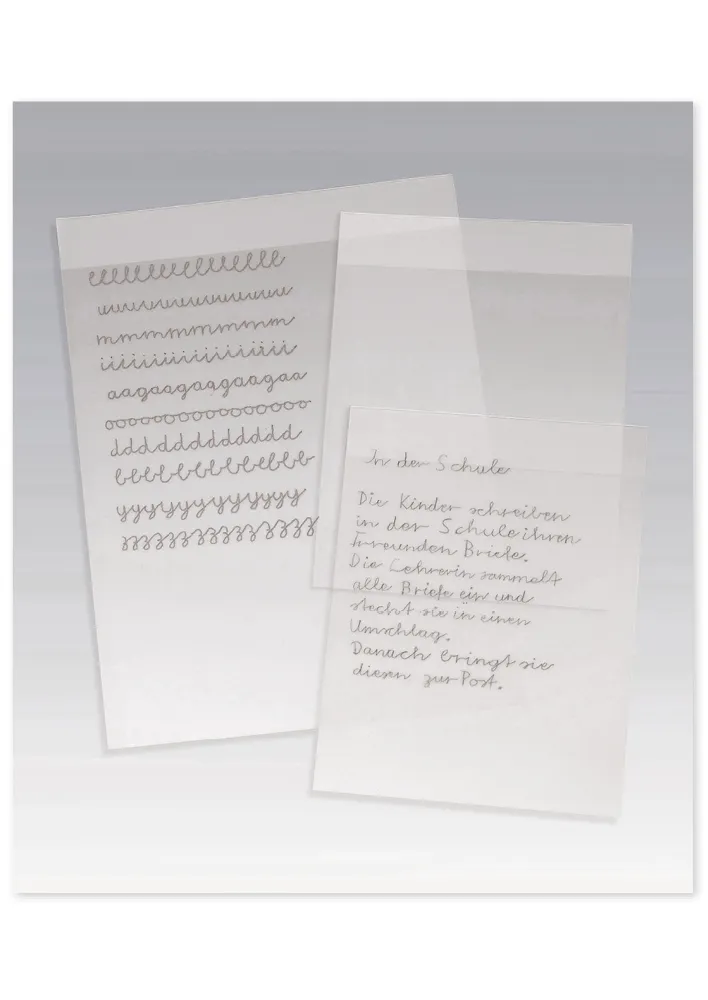 eeeeeeeeeeeeeee
uuuuuuuuuuu
mmmmmmmm
iiiiiiiiiiiiiiii
aagaagaagaagaa
ooooooooooooooo
dddddddddddd
bbbbbbbbbbbb
yyyyyyyyyyyy
zzzzzzzzzzz
In der Schule
Die Kinder schreiben
in der Schule ihren
Freunden Briefe.
Die Lehrerin sammelt
alle Briefe ein und
stecht sie in einen
Umschlag.
Danach bringt sie
diesen zur Post.